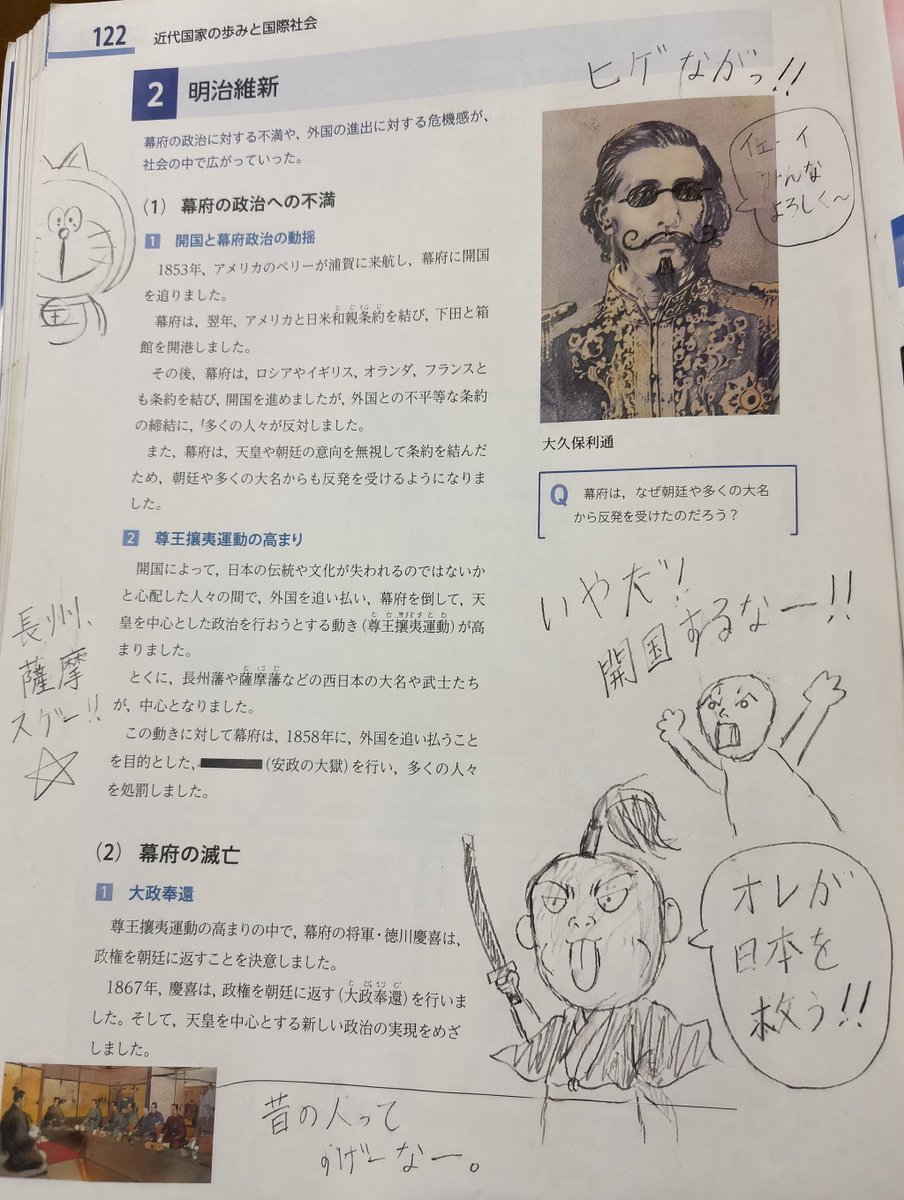 122
近代国家の歩みと国際社会
2 明治維新
幕府の政治に対する不満や、外国の進出に対する危機感が、
社会の中で広がっていった。
(1) 幕府の政治への不満
1 開国と幕府政治の動揺
1853年，アメリカのペリーが浦賀に来航し，幕府に開国
を迫りました。
幕府は，翌年，アメリカと日米和親条約を結び，下田と箱
館を開港しました。
その後，幕府は，ロシアやイギリス，オランダ，フランスと
も条約を結び，開国を進めましたが，外国との不平等な条約
の締結に，「多くの人々が反対しました。
また，幕府は，天皇や朝廷の意向を無視して条約を結んだ
ため，朝廷や多くの大名からも反発を受けるようになりま
した。
2 尊王攘夷運動の高まり
開国によって，日本の伝統や文化が失われるのではないか
と心配した人々の間で，外国を追い払い，幕府を倒して，天
皇を中心とした政治を行おうとする動き（尊王攘夷運動）が高
まりました。
とくに，長州藩や薩摩藩などの西日本の大名や武士たち
が，中心となりました。
この動きに対して幕府は，1858年に，外国を追い払うこと
を目的とした，
（安政の大獄）を行い，多くの人々
を処罰しました。
(2) 幕府の滅亡
1 大政奉還
尊王攘夷運動の高まりの中で，幕府の将軍・徳川慶喜は，
政権を朝廷に返すことを決意しました。
1867年，慶喜は，政権を朝廷に返す（大政奉還）を行いま
した。そして，天皇を中心とする新しい政治の実現をめざ
しました。
ヒゲながっ!!
イェーイ
みんな
よろしく〜
大久保利通
Q 幕府は，なぜ朝廷や多くの大名
から反発を受けたのだろう？
いやだ!
開国するなー!!
長州、
薩摩
スゲー!!
オレが
日本を
救う!!
昔の人って
すげーなー。